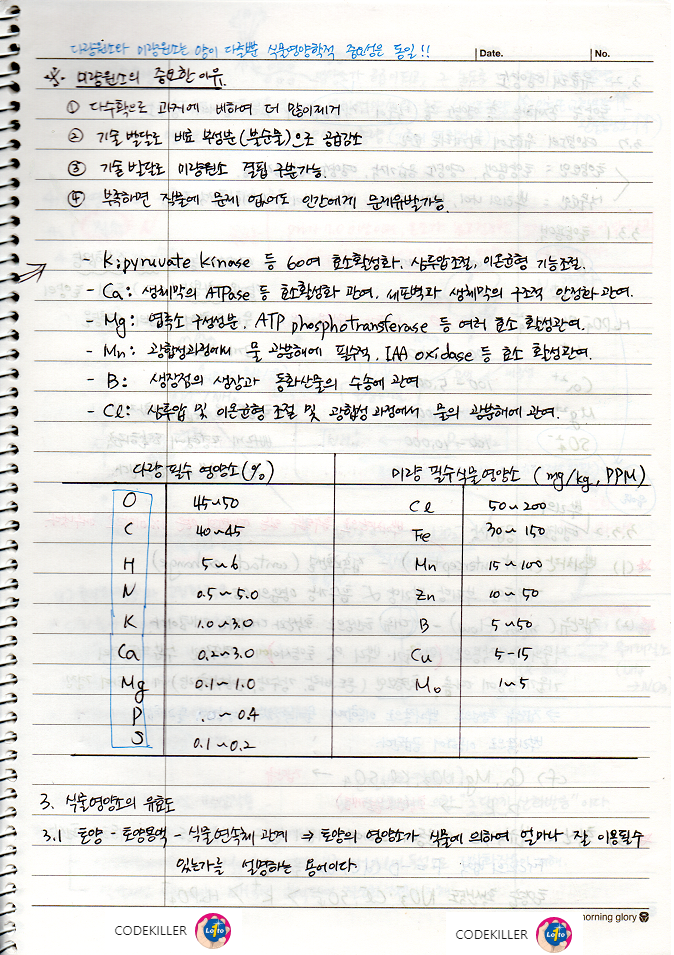 다량원소와 미량원소는 양이 다를뿐 식물영양학적 중요성은 동일!!
Date. No.
※. 미량원소의 중요한 이유.
① 다수확으로 과거에 비하여 더 많이제거
② 기술 발달로 비료 부성분(불순물)으로 공급감소
③ 기술 발달로 미량원소 결핍 구분가능.
④ 부족하면 작물에 문제 없어도 인간에게 문제유발가능.
- K: pyruvate kinase 등 60여 효소활성화, 삼투압조절, 이온균형 기능조절.
- Ca: 생체막의 ATPase 등 효소활성화 관여, 세포벽과 생체막의 구조적 안정화 관여.
- Mg: 엽록소 구성성분, ATP phosphotransferase 등 여러 효소 활성관여.
- Mn: 광합성과정에서 물 광분해에 필수적, IAA oxidase 등 효소 활성관여.
- B: 생장점의 생장과 동화산물의 수송에 관여
- Cl: 삼투압 및 이온균형 조절 및 광합성 과정에서 물의 광분해에 관여.
다량 필수 영양소(%) 미량 필수식물영양소 (mg/kg, PPM)
O 45~50 Cl 50~200
C 40~45 Fe 30~150
H 5~6 Mn 15~100
N 0.5~5.0 Zn 10~50
K 1.0~3.0 B 5~50
Ca 0.2~3.0 Cu 5-15
Mg 0.1~1.0 Mo 1~5
P ~0.4
S 0.1~0.2
3. 식물영양소의 유효도
3.1 토양 - 토양용액 - 식물연속체 관계 ⇒ 토양의 영양소가 식물에 의하여 얼마나 잘 이용될수
있는가를 설명하는 용어이다.
morning glory
CODEKILLER Lotto CODEKILLER Lotto